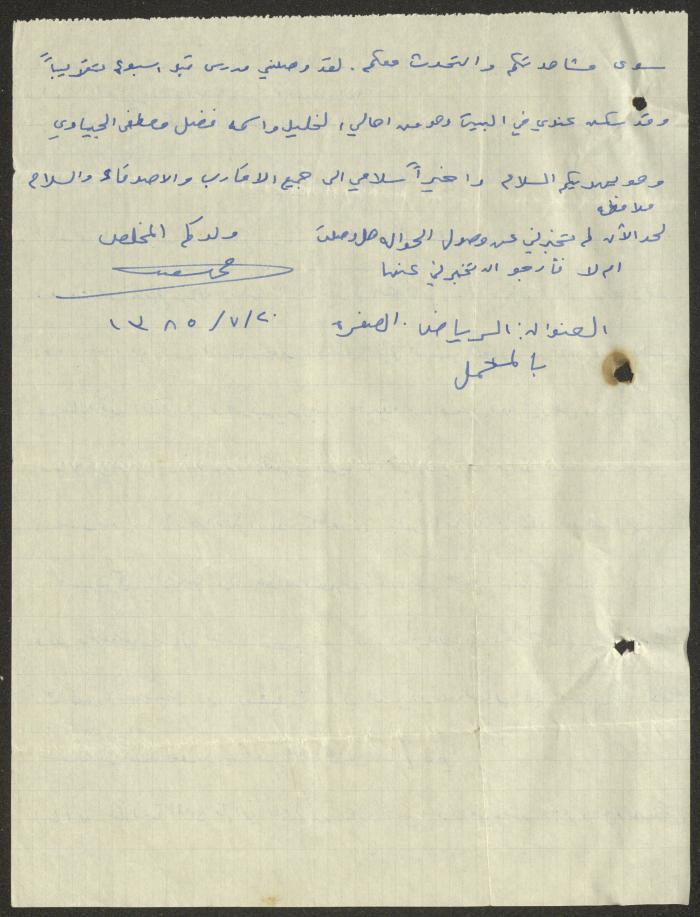 سوى مشاهدتكم والتحدث معكم. لقد وصلني مدرس قبل اسبوع تقريباً
وقد سكن عندي في البيت وهو من اهالي الخليل واسمه فضل مصطفى الجبياوي
وهو يهديكم السلام واخيراً سلامي الى جميع الاقارب والاصدقاء والسلام
ملاحظة
لحد الآن لم تخبرني عن وصول الحواله هل وصلت
ام لا فأرجو ان تخبرني عنها
ولدكم المخلص
العنوان: الرياض. الصفره
بالمحمل
٢٠/٧/١٣٨٥